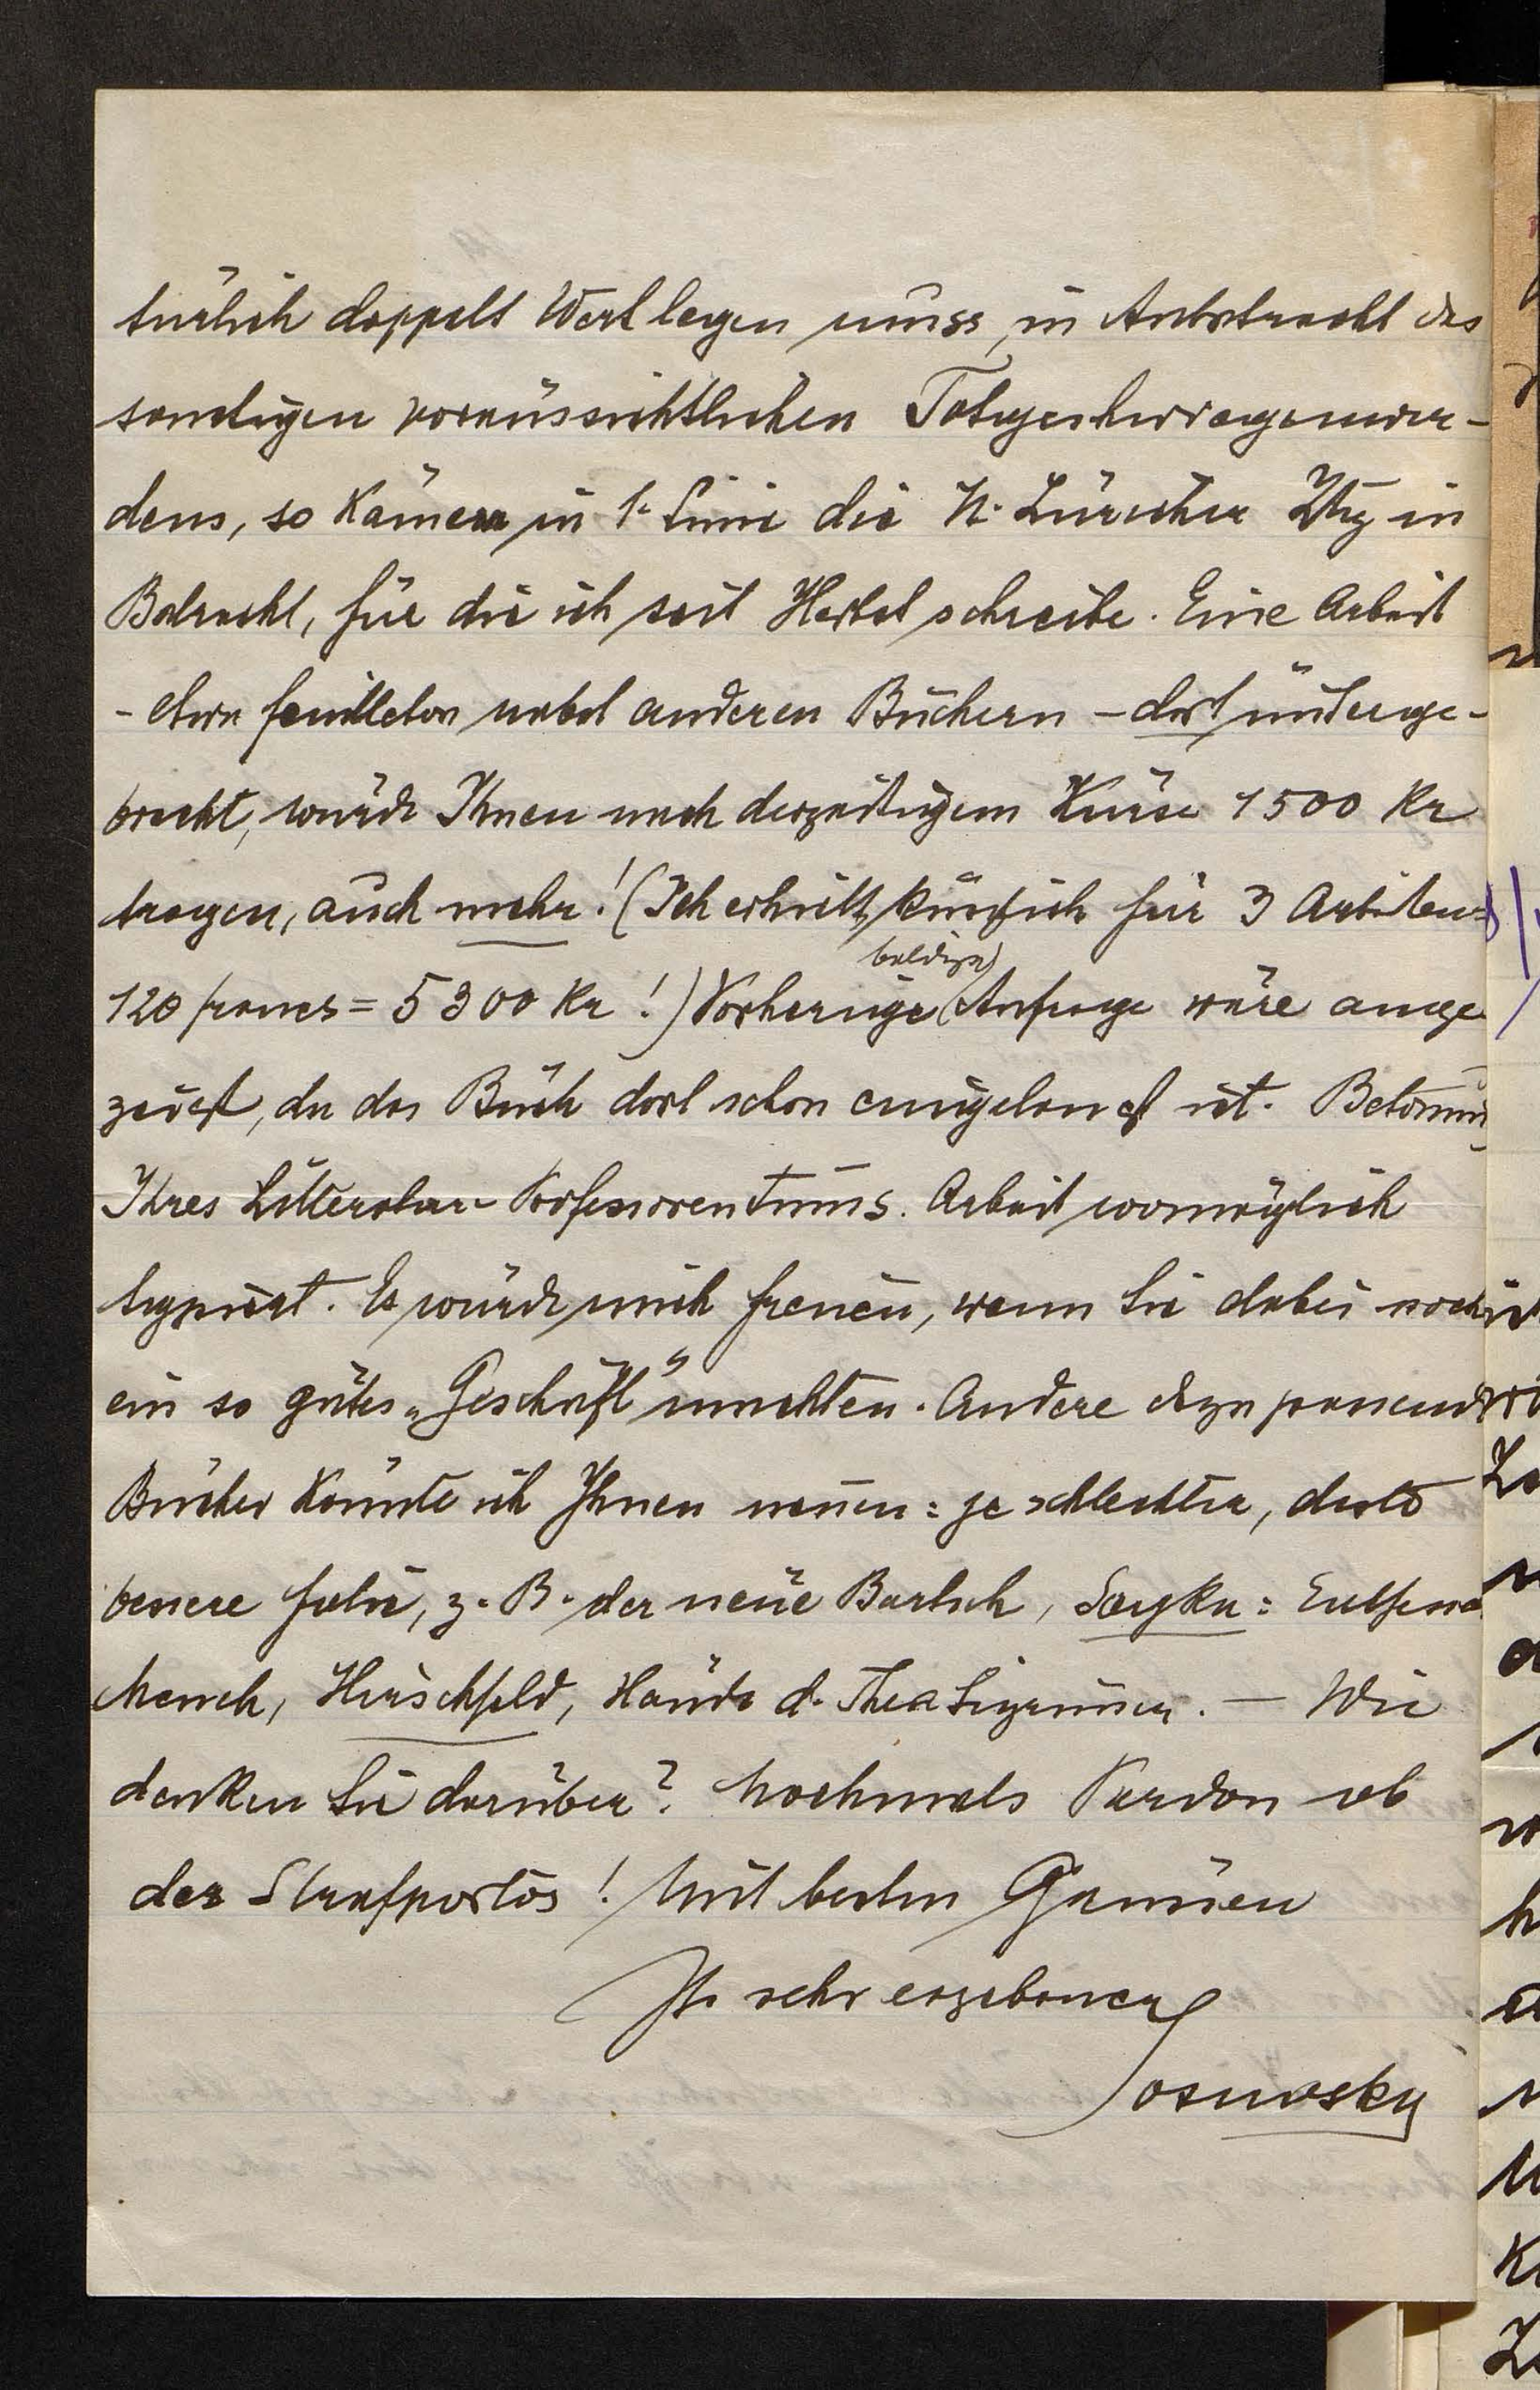 türlich doppelt Wert legen muss, in Anbetracht des
sonstigen voraussichtlichen Totgeschwiegenwer-
dens, so kämen in 1. Linie die N. Züricher Ztg in
Betracht, für die ich seit Herbst schreibe. Eine Arbeit
- etwa Feuilleton nebst anderen Büchern - dort unterge-
bracht, würde Ihnen nach derzeitigem Kurse 1500 Kr
tragen, auch mehr! (Ich erhielt kürzlich für 3 Arbeiten
120 francs = 5300 Kr!) Vorherige (baldige) Anfrage wäre ange
zeigt, da das Buch dort schon eingelangt ist. Betonung
Ihres Litteratur-Professorentums. Arbeit womöglich
typiert. Es würde mich freuen, wenn Sie dabei noch
ein so gutes „Geschäft“ machten. Andere dazu passende
Bücher könnte ich Ihnen nennen: je schlechter, desto
bessere Folie, z. B. der neue Bartsch, Sayka:
Mensch, Hirschfeld, Hände d. Thea Sigrüner. — Wie
denken Sie darüber? Nochmals Pardon ob
des Strafportos! Mit besten Grüssen
Ihr sehr ergebener
Sosnosky